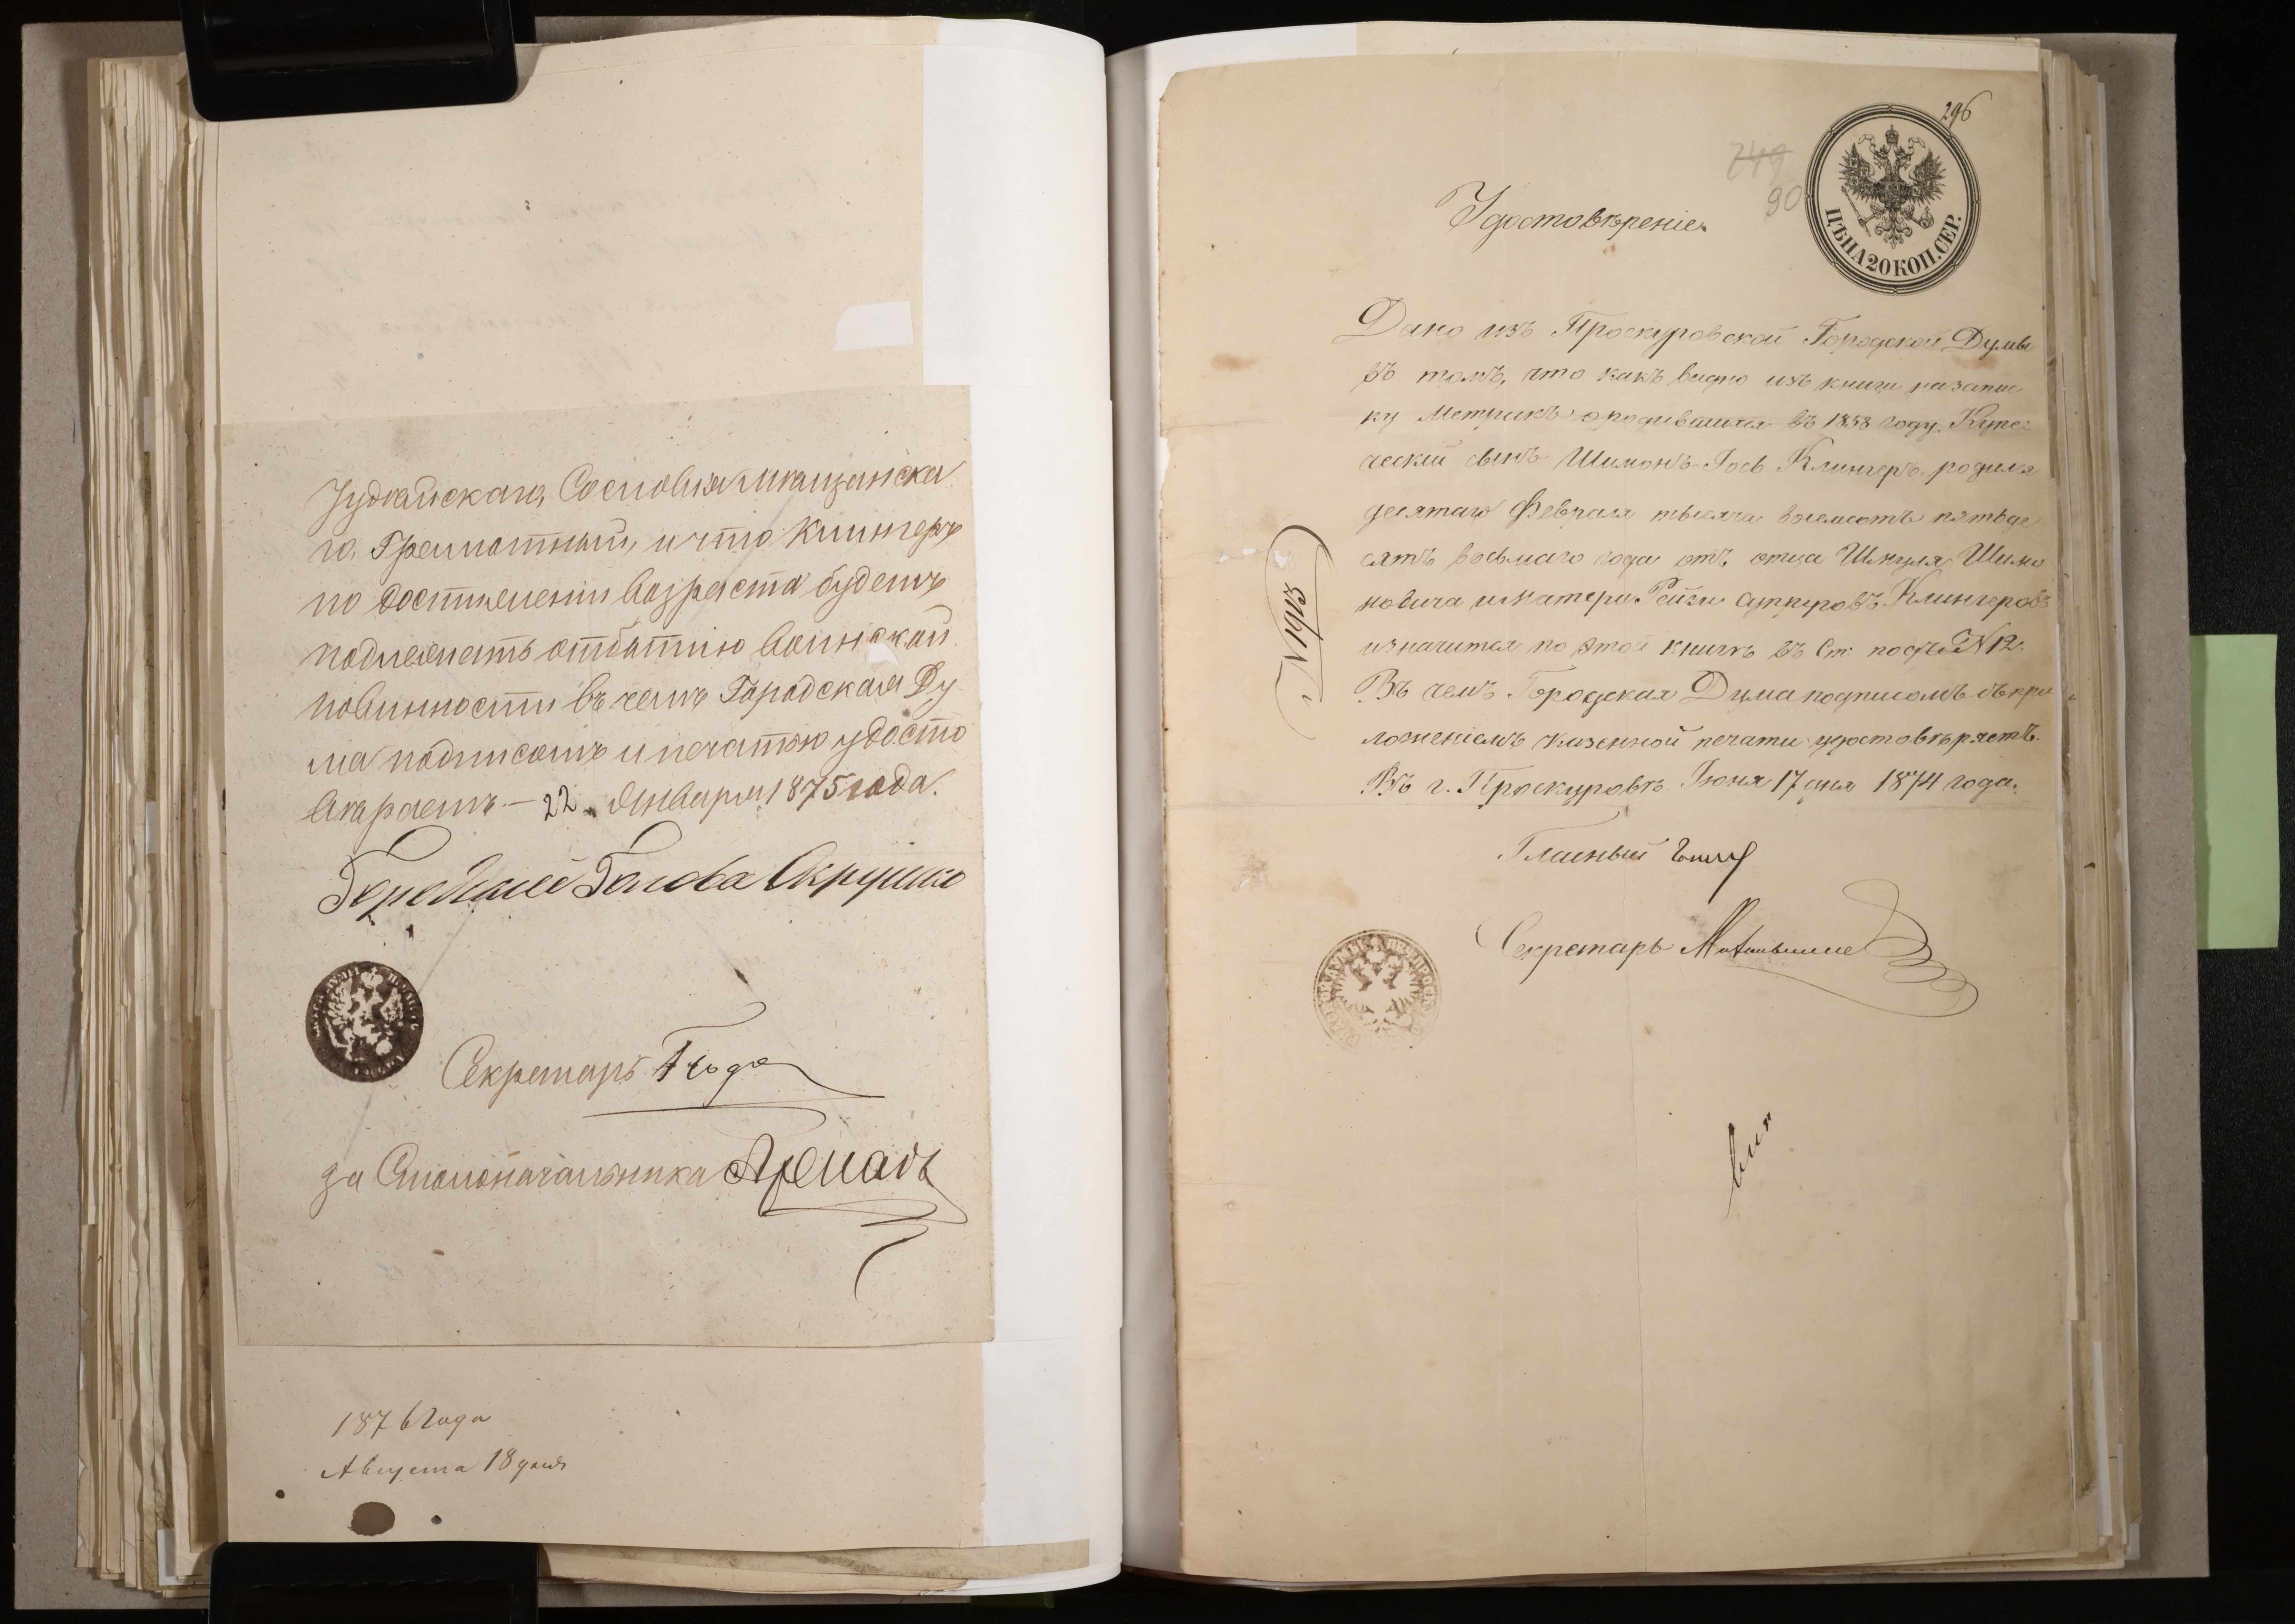 Іудейскаго, Сословія мѣщанска
го, Грамотный, и что Клингеръ
по достиженіи возраста будетъ
подлежать отбытію воинской
повинности въ чемъ Городская Ду
ма подписомъ и печатью удосто
вѣряетъ — 22 Января 1875 года.
Городской Голова
Секретарь
за Столоначальника
1876 года
Августа 18 дня
296
749
90
ЦѢНА 20 КОП. СЕР.
Удостовѣреніе.
Дано изъ Проскуровской Городской Думы
въ томъ, что какъ видно изъ книги на запис
ку Метрикъ о родившихся въ 1858 году. Купе:
ческій сынъ Шимонъ-Іось Клингеръ родился
десятаго Февраля тысяча восемсотъ пятьде
сятъ восьмаго года отъ отца Шмуля Шимо
новича и матери Рейзи Клингеровъ
и значится по этой книгѣ въ Ст: подъ N 12.
Въ чемъ Городская Дума подписомъ съ при
ложеніемъ казенной печати удостовѣряетъ.
Въ г. Проскуровѣ Іюня 17 дня 1874 года.
N 1913
Гласный
Секретарь